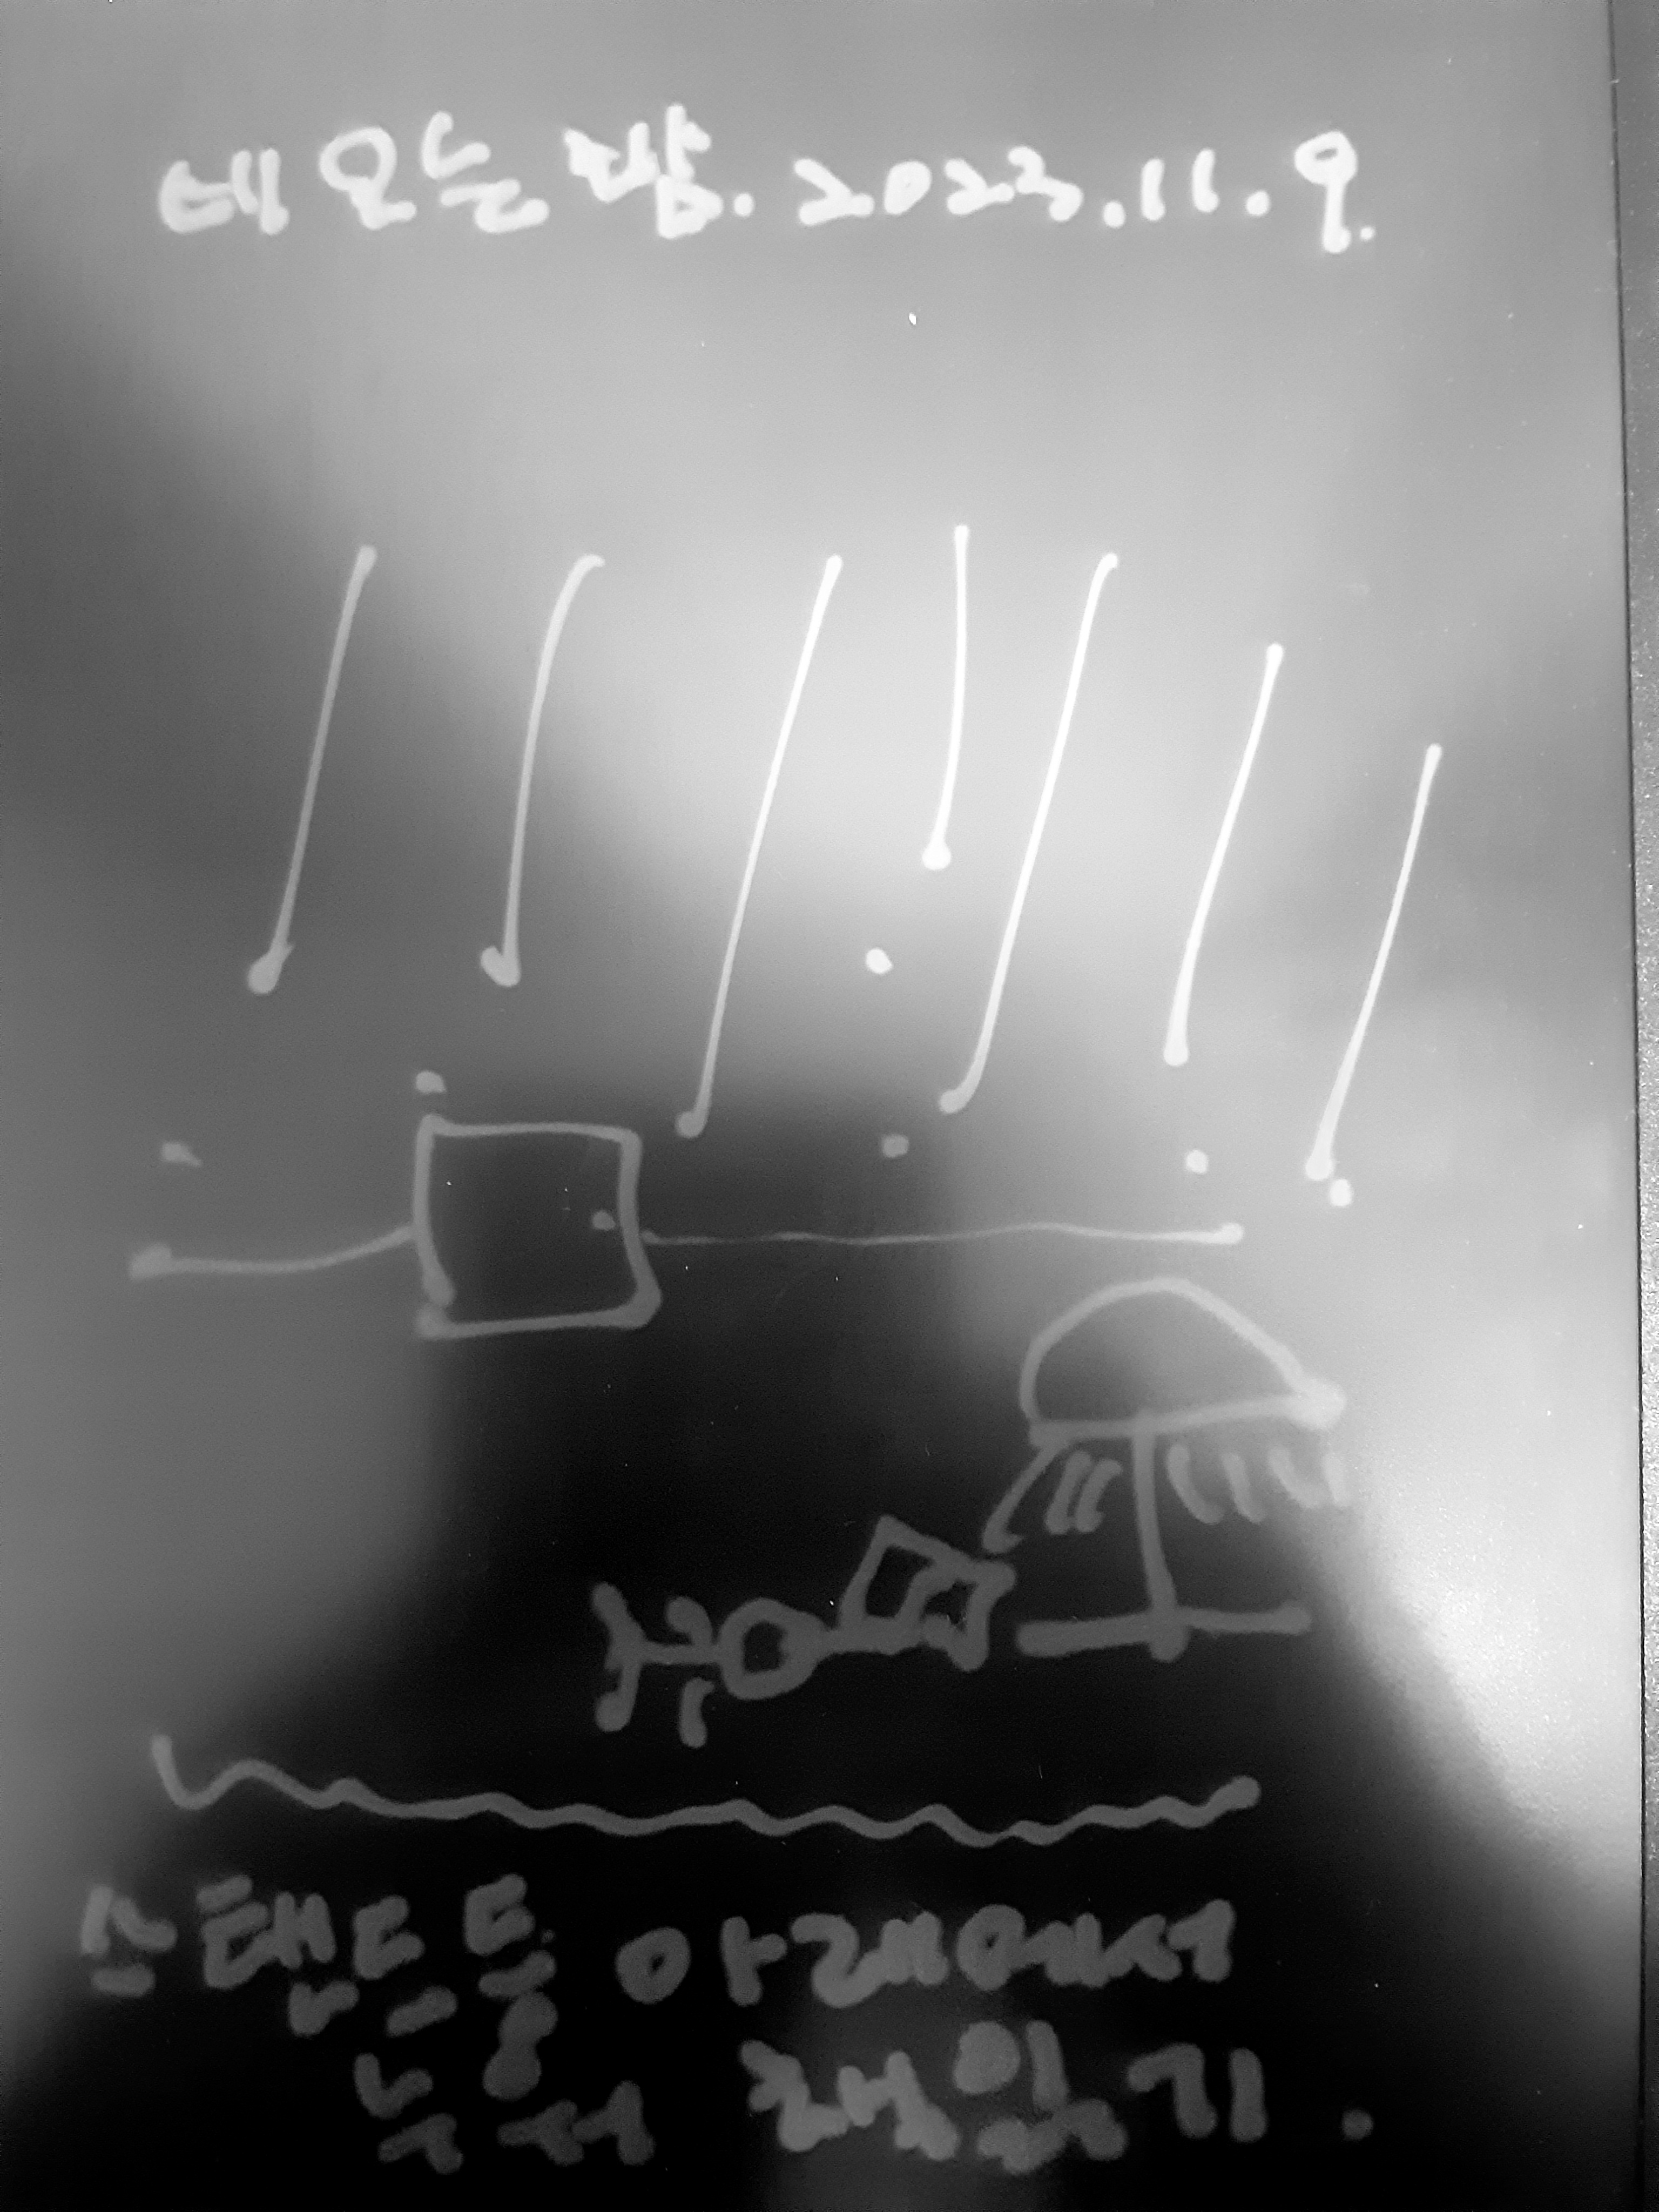 비 오는 밤. 2023.11.9.
스탠드등 아래에서
누워 책읽기.